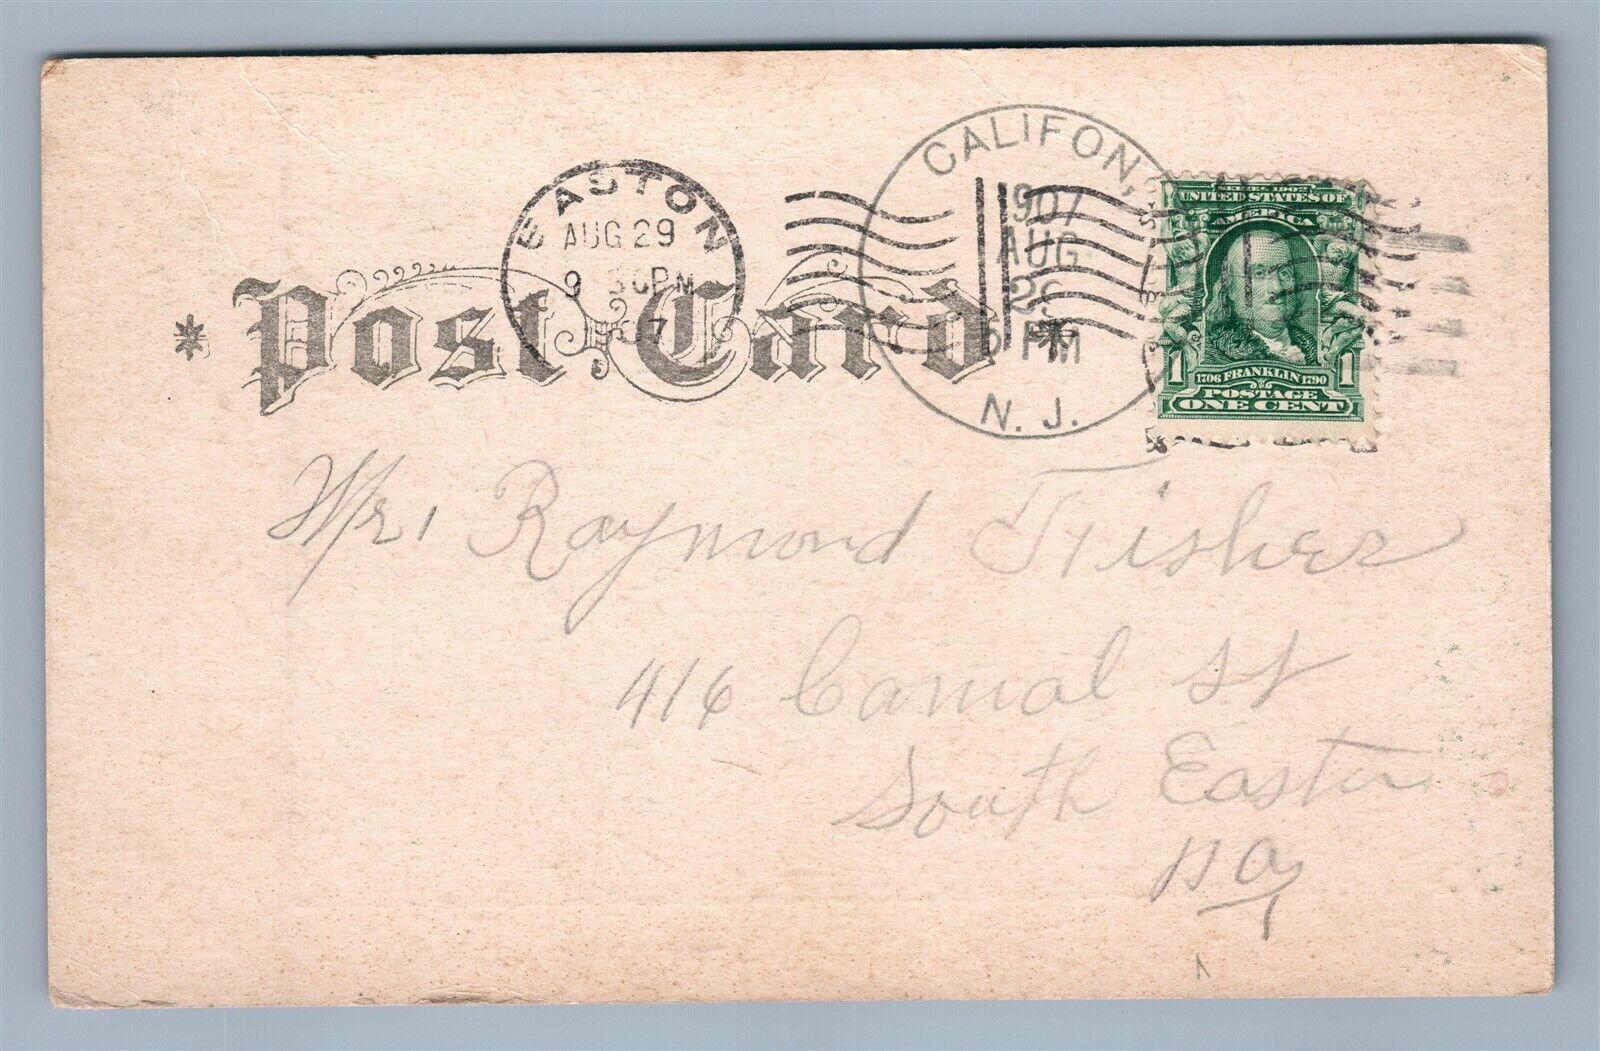 EASTON
AUG 29
9 30PM
07
CALIFON,
1907
AUG
29
PM
N. J.
SERIES 1902
UNITED STATES OF
AMERICA
1706 FRANKLIN 1790
1 1
POSTAGE
ONE CENT
* Post Card *
Mr. Raymond Fisher
416 Canal St
South Easton
Pa